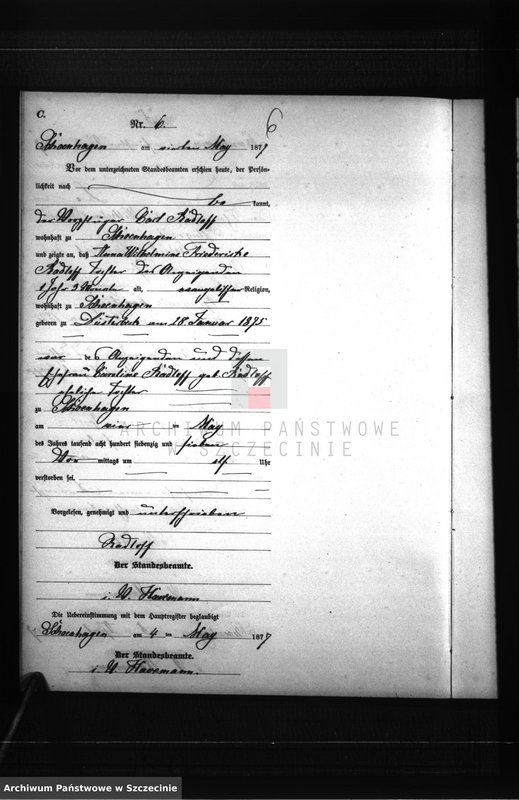 C.
Nr. 6.
6
Schoenhagen am vierten May 1877
Vor dem unterzeichneten Standesbeamten erschien heute, der Persön-
lichkeit nach
be kannt,
der Carl Radloff
wohnhaft zu Schoenhagen
und zeigte an, daß Anna Wilhelmine Friederike
Radloff Tochter des Anzeigenden
2 Jahr 3 Monate alt, evangelischer Religion,
wohnhaft zu Schoenhagen
geboren zu Düsterbeck am 28. Januar 1875
war des Anzeigenden und dessen
Ehefrau Caroline Radloff geb. Radloff
eheliche Tochter
zu Schoenhagen
am vier ten May
des Jahres tausend acht hundert siebenzig und sieben
Vor mittags um elf Uhr
verstorben sei.
Vorgelesen, genehmigt und unterschrieben
Radloff
Der Standesbeamte.
i. V. Havemann
Die Uebereinstimmung mit dem Hauptregister beglaubigt
Schoenhagen am 4 ten May 1877
Der Standesbeamte.
i. V. Havemann.
ARCHIWUM PAŃSTWOWE
W SZCZECINIE
Archiwum Państwowe w Szczecinie